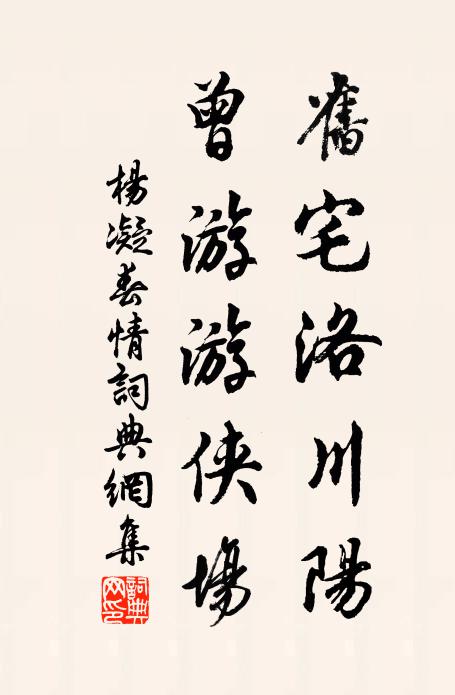 舊宅洛川陽
曾游游俠場
楊凝春情詞典網集
詞典网印